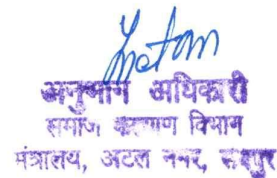 अनुभाग अधिकारी
समाज कल्याण विभाग
मंत्रालय, अटल नगर, रायपुर